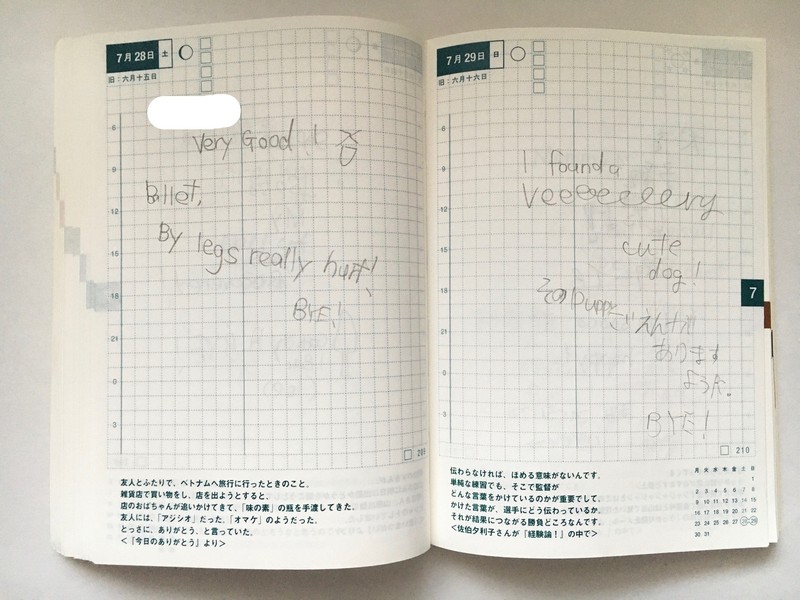 7月28日 土
旧:六月十五日
6
Very Good!
9
Ballet,
12
By legs really hurt!
15
18
BYE!
21
0
3
友人とふたりで、ベトナムへ旅行に行ったときのこと。
雑貨店で買い物をし、店を出ようとすると、
店のおばちゃんが追いかけてきて、「味の素」の瓶を手渡してきた。
友人には、「アジシオ」だった。「オマケ」のようだった。
とっさに、ありがとう、と言っていた。
<『今日のありがとう』より>
7月29日 日
旧:六月十六日
6
I found a
9
Veeeeeeeery
12
cute
15
dog!
18
そのpuppy ごえんが
21
あります
0
ように。
3
BYE!
7
210
伝わらなければ、ほめる意味がないんです。
単純な練習でも、そこで監督が
どんな言葉をかけているのかが重要でして。
かけた言葉が、選手にどう伝わっているか。
それが結果につながる勝負どころなんです。
<佐伯夕利子さんが『経験論!』の中で>
月 火 水 木 金 土 日
1
2 3 4 5 6 7 8
9 10 11 12 13 14 15
16 17 18 19 20 21 22
23 24 25 26 27 28 29
30 31